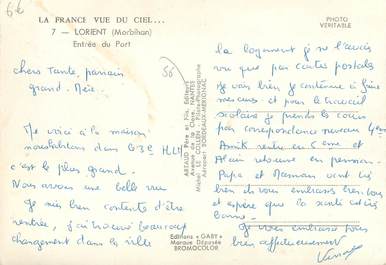 6€
LA FRANCE VUE DU CIEL...
7 — LORIENT (Morbihan)
Entrée du Port
PHOTO
VERITABLE
chers Tante, parrain
grand-Mère.
Me voici à la maison
nous habitons dans le 3e HLM
c'est le plus grand.
Nous avons une belle vue
Je suis bien contente d'être
rentrée, j'ai trouvé beaucoup
changement dans la ville
56
ARTAUD Père et Fils, Editeurs
Avenue de la Close, NANTES
Michel LE COLLEN, Pilote-Photographe
Aéroport BORDEAUX-MERIGNAC
Editions « GABY »
Marque Déposée
BROMOCOLOR
le logement je ne l'avais
vu que par cartes postales
Je vais bien je continue à faire
mes cures et pour le travail
scolaire je prends les cours
par correspondance niveau 4ème
Annik rentre en 5ème et
Alain retourne en pension.
Papa et Maman vont
bien de vous embrasser bien
et espère que la santé est
bonne.
Je vous embrasse tous
bien affectueusement